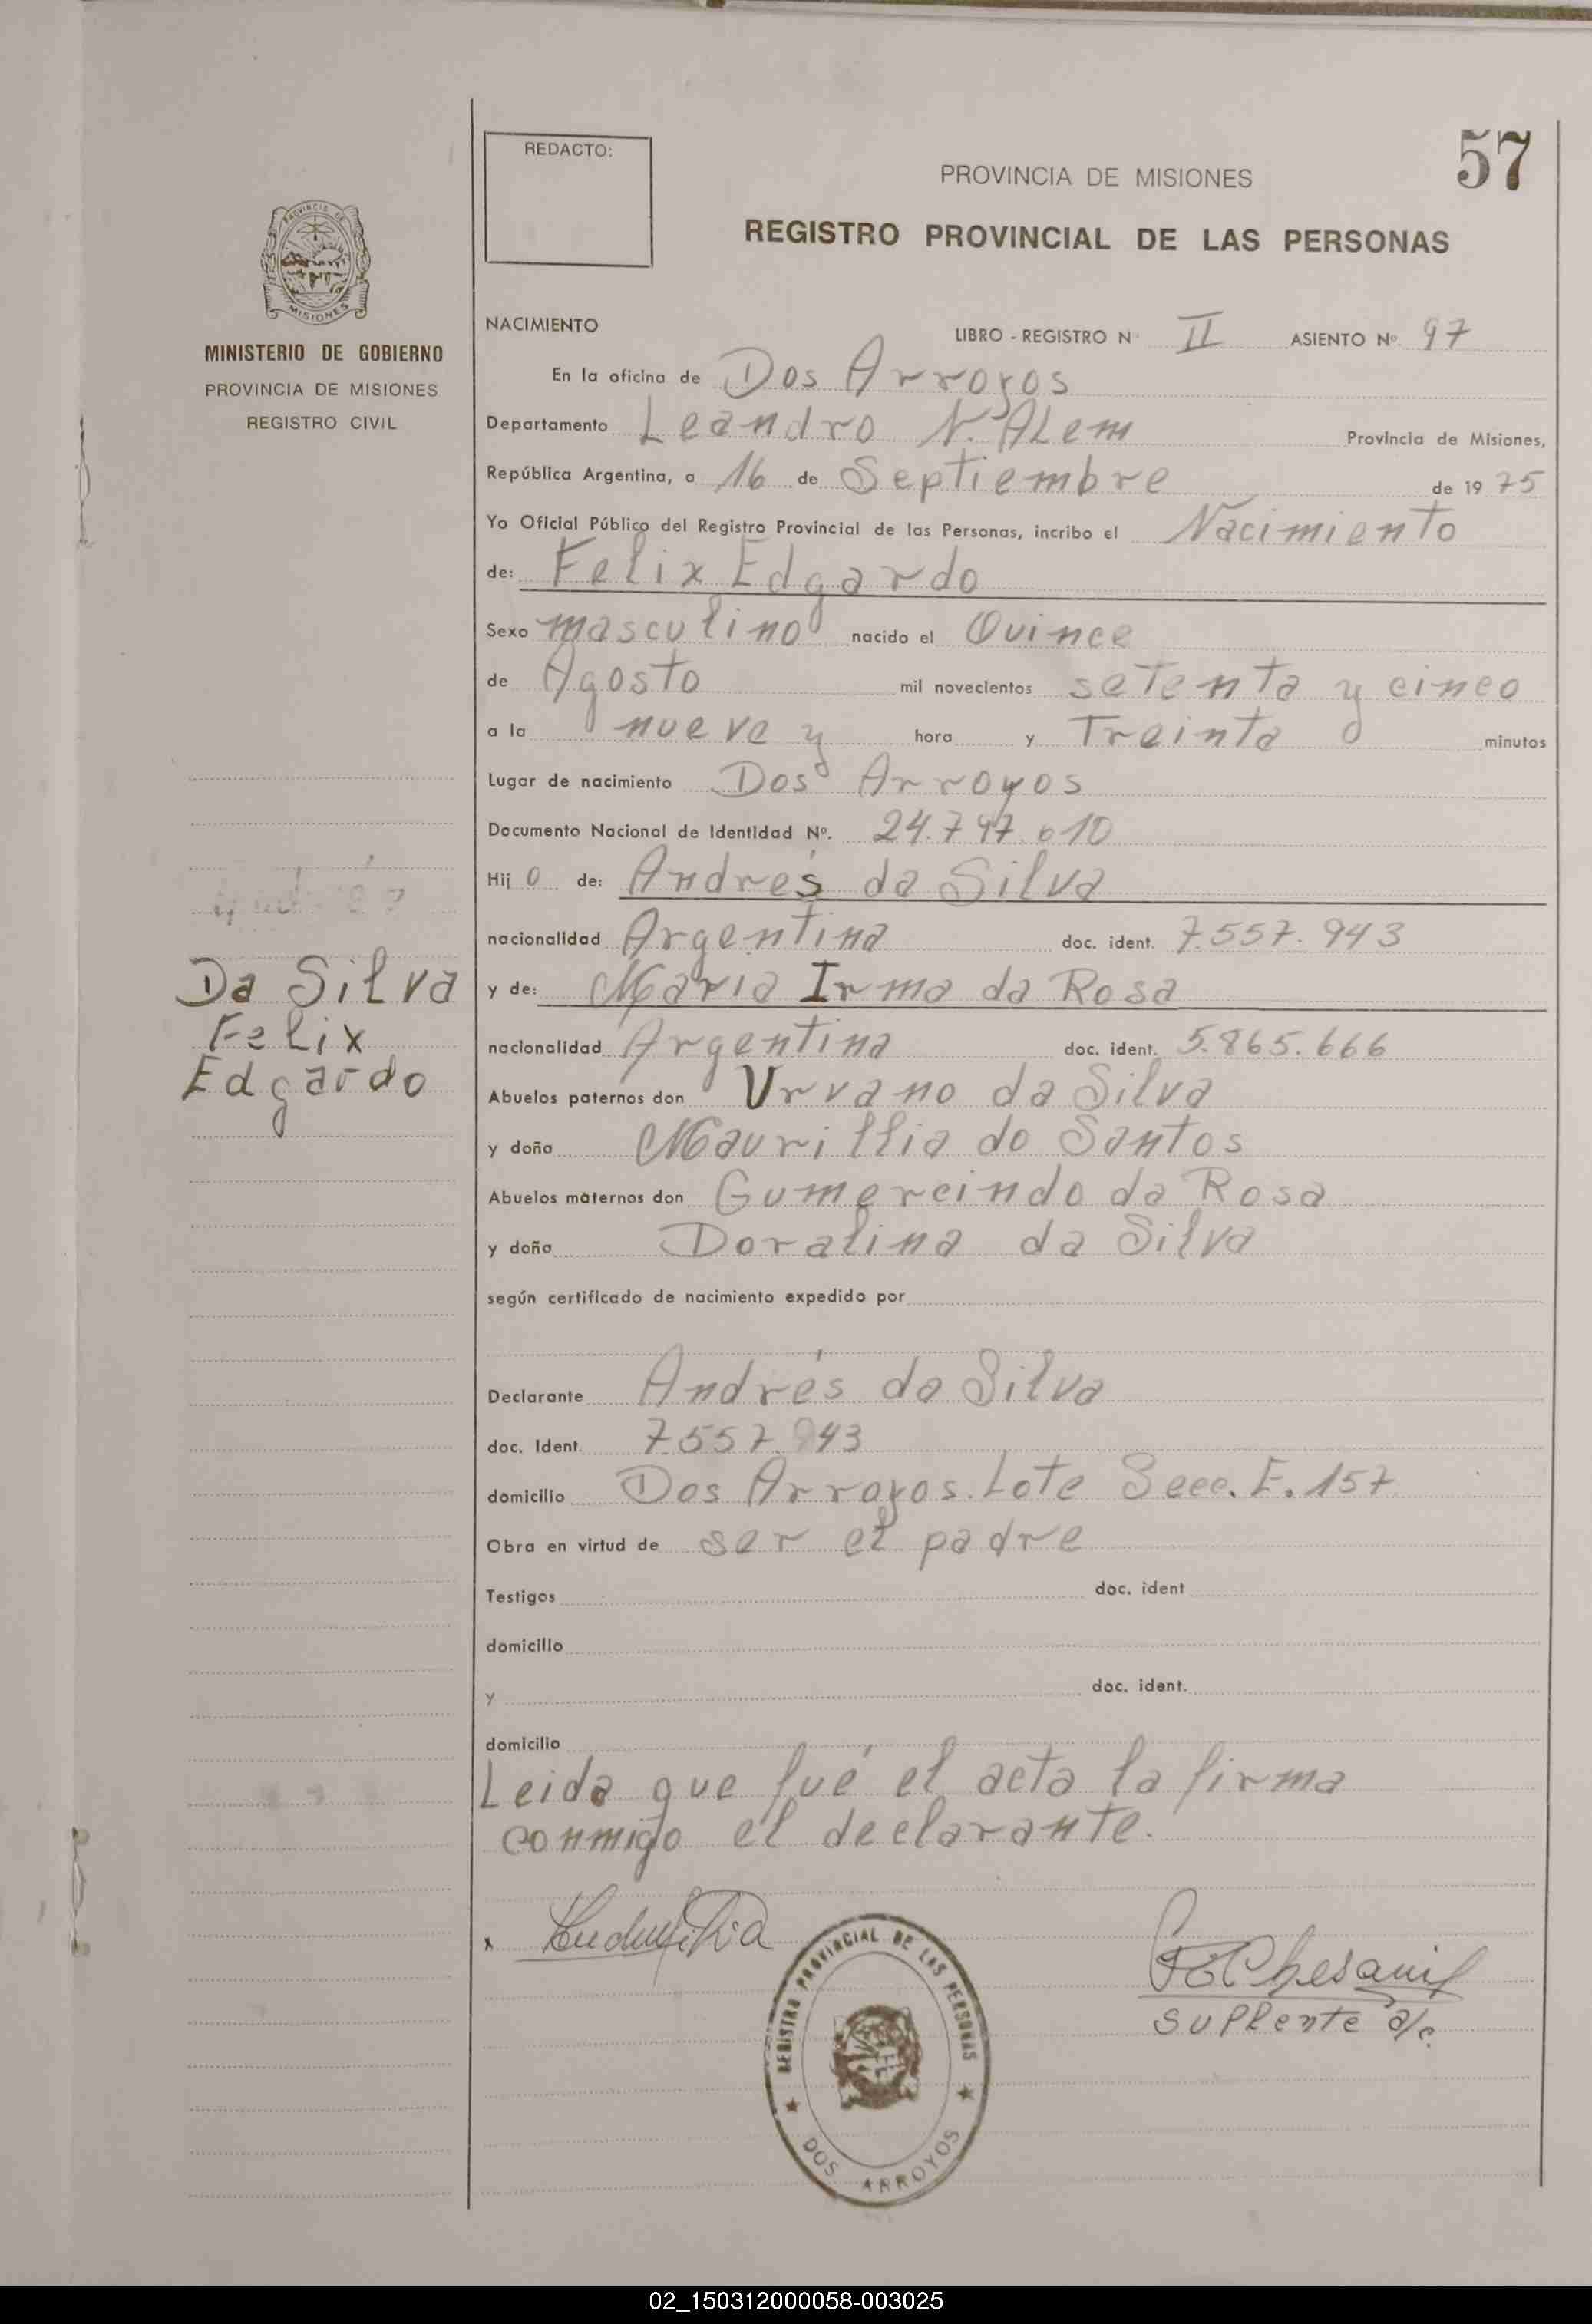 57
REDACTO:
PROVINCIA DE MISIONES
REGISTRO PROVINCIAL DE LAS PERSONAS
PROVINCIA DE
MISIONES
MINISTERIO DE GOBIERNO
PROVINCIA DE MISIONES
REGISTRO CIVIL
NACIMIENTO LIBRO - REGISTRO N° II ASIENTO Nº 97
En la oficina de Dos Arroyos
Departamento Leandro N. ALem Provincia de Misiones,
República Argentina, a 16 de Septiembre de 1975
Yo Oficial Público del Registro Provincial de las Personas, incribo el Nacimiento
de: Felix Edgardo
Sexo masculino nacido el Quince
de Agosto mil novecientos setenta y cinco
a la nueve y hora y Treinta minutos
Lugar de nacimiento Dos Arroyos
Documento Nacional de Identidad Nº. 24.797.610
Hijo de: Andrés da Silva
nacionalidad Argentina doc. ident. 7.557.943
y de: Maria Irma da Rosa
nacionalidad Argentina doc. ident. 5.865.666
Abuelos paternos don Urvano da Silva
y doña Maurillia do Santos
Abuelos maternos don Gumercindo da Rosa
y doña Doralina da Silva
Da Silva
Felix
Edgardo
según certificado de nacimiento expedido por
Declarante Andrés da Silva
doc. Ident. 7.557.943
domicilio Dos Arroyos. Lote Secc. E. 157
Obra en virtud de ser el padre
Testigos doc. ident
domicilio
y doc. ident.
domicilio
Leida que fué el acta la firma
conmigo el declarante.
x
suplente a/c.
REGISTRO PROVINCIAL DE LAS PERSONAS
DOS ARROYOS
02_150312000058-003025